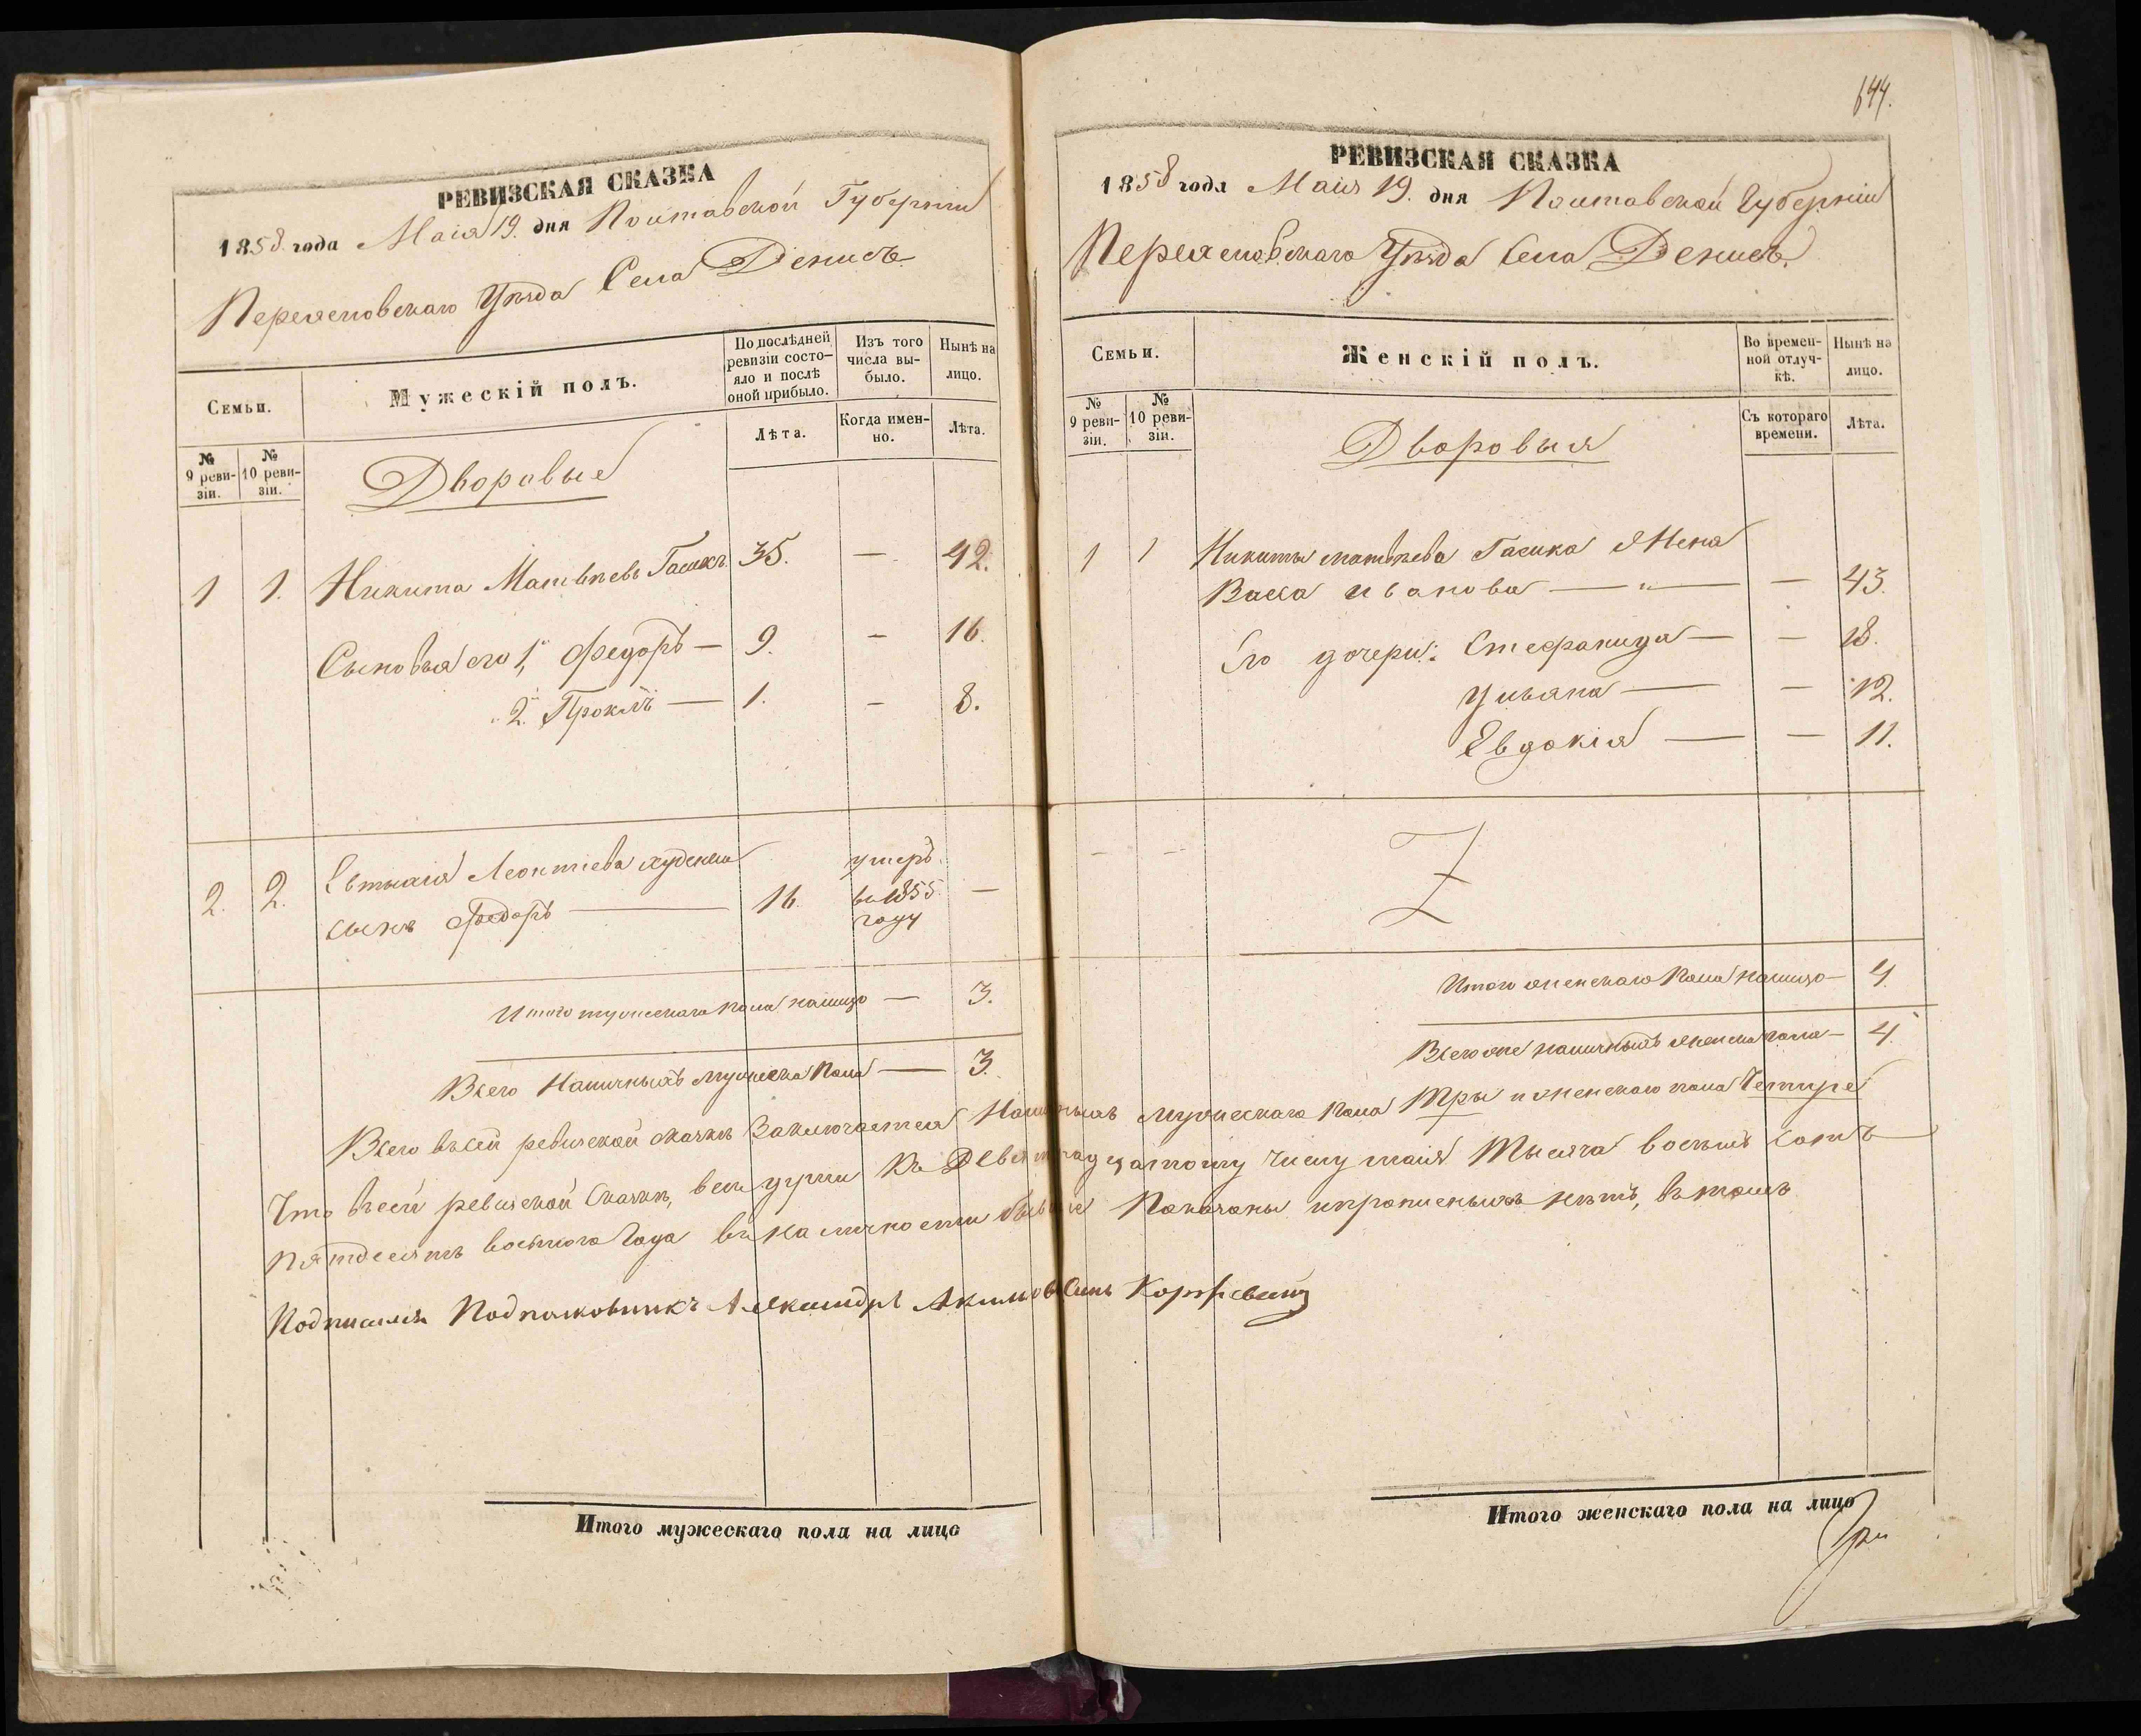 РЕВИЗСКАЯ СКАЗКА
1858. года Маія 19. дня Полтавской Губерніи
Переясловскаго Уѣзда Села Денисъ
Семьи.
Мужескій полъ.
По послѣдней ревизіи состо-
яло и послѣ оной прибыло.
Изъ того числа вы-
было.
Нынѣ на лицо.
№ 9 реви-
зіи.
№ 10 реви-
зіи.
Лѣта.
Когда имен-
но.
Лѣта.
Дворовые
1 1. Никита Матвѣевъ Гасика 35. — 42.
Сыновья его 1, Федоръ — 9. — 16.
2. Проклъ — 1. — 8.
2. 2. Леонтіева
сынъ Федоръ — 16. умеръ въ 1855 году —
Итого мужескаго пола налицо — 3.
Всего Наличныхъ мужеска Пола — 3.
644.
РЕВИЗСКАЯ СКАЗКА
1858 года Маія 19. дня Полтавской Губерніи
Переясловскаго Уѣзда Села Денисъ.
Семьи.
Женскій полъ.
Во времен-
ной отлуч-
кѣ.
Нынѣ на лицо.
№ 9 реви-
зіи.
№ 10 реви-
зіи.
Съ котораго времени.
Лѣта.
Дворовыя
1 1 Никиты Матвѣева Гасика Жена
Васса Иванова — „ — — 43.
Его дочери: Стефанида — — 18.
Ульяна — — 12.
Евдокія — — 11.
— — Z
Итого женскаго Пола налицо — 4.
Всего же наличныхъ женска пола — 4.
Всего въ сей ревизской сказкѣ Заключается Наличныхъ мужескаго пола Три и женскаго пола Четыре
Что въ сей ревизской Сказкѣ, всѣ души къ Девятнадцатому числу маія Тысяча восемь сотъ
пятдесятъ восьмого Года въ наличности бывшіе Показаны и прописныхъ нѣтъ, въ томъ
Подписался Подполковникъ Александръ Акимовъ Сынъ
Итого мужескаго пола на лицо
Итого женскаго пола на лицо